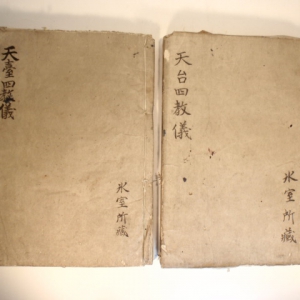 天台四教儀
氷室所蔵
天臺四教儀
氷室所蔵